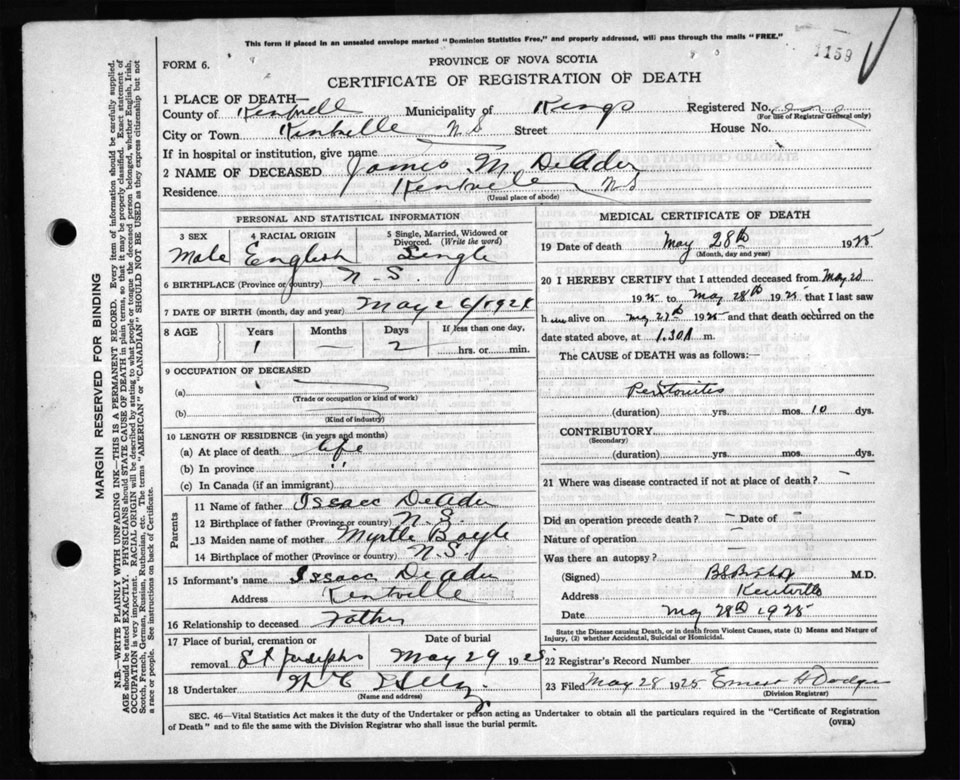 This form if placed in an unsealed envelope marked "Dominion Statistics Free," and properly addressed, will pass through the mails "FREE."
1159
FORM 6.
PROVINCE OF NOVA SCOTIA
CERTIFICATE OF REGISTRATION OF DEATH
1 PLACE OF DEATH—
County of Municipality of Kings Registered No.
(For use of Registrar General only)
City or Town Kentville N S Street House No.
If in hospital or institution, give name
2 NAME OF DECEASED James M.
Residence Kentville N S
(Usual place of abode)
PERSONAL AND STATISTICAL INFORMATION
3 SEX 4 RACIAL ORIGIN 5 Single, Married, Widowed or Divorced. (Write the word)
Male English Single
6 BIRTHPLACE (Province or country) N. S.
7 DATE OF BIRTH (month, day and year) May 26/1924
8 AGE Years Months Days If less than one day,
1 — 2 hrs. or min.
9 OCCUPATION OF DECEASED
(a)
(Trade or occupation or kind of work)
(b)
(Kind of industry)
10 LENGTH OF RESIDENCE (in years and months)
(a) At place of death life
(b) In province " "
(c) In Canada (if an immigrant)
Parents
11 Name of father Isaac
12 Birthplace of father (Province or country) N. S.
13 Maiden name of mother Myrtle Boyle
14 Birthplace of mother (Province or country) N. S.
15 Informant's name Isaac
Address Kentville
16 Relationship to deceased Father
17 Place of burial, cremation or removal Date of burial
St Josephs May 29 1925
18 Undertaker
(Name and address)
MEDICAL CERTIFICATE OF DEATH
19 Date of death May 28th 1925
(Month, day and year)
20 I HEREBY CERTIFY that I attended deceased from May 20
1925 to May 28th 1925 that I last saw
h im alive on May 27th 1925 and that death occurred on the
date stated above, at 1.30 m.
The CAUSE of DEATH was as follows:—
Peritonitis
(duration) yrs. mos. 10 dys.
CONTRIBUTORY
(Secondary)
(duration) yrs. mos. dys.
21 Where was disease contracted if not at place of death? —
Did an operation precede death? — Date of —
Nature of operation —
Was there an autopsy? —
(Signed) B S Bishop M.D.
Address Kentville
Date May 28th 1925
State the Disease causing Death, or in death from Violent Causes, state (1) Means and Nature of
Injury, (2) whether Accidental, Suicidal or Homicidal.
22 Registrar's Record Number
23 Filed May 28 1925 Ernest H
(Division Registrar)
SEC. 46—Vital Statistics Act makes it the duty of the Undertaker or person acting as Undertaker to obtain all the particulars required in the "Certificate of Registration
of Death" and to file the same with the Division Registrar who shall issue the burial permit.
(OVER)
MARGIN RESERVED FOR BINDING
N.B.—WRITE PLAINLY WITH UNFADING INK—THIS IS A PERMANENT RECORD. Every item of information should be carefully supplied.
AGE should be stated EXACTLY. PHYSICIANS should STATE CAUSE OF DEATH in plain terms, so that it may be properly classified. Exact statement of
OCCUPATION is very important. RACIAL ORIGIN will be described by stating to what people or tongue the deceased person belonged, whether English, Irish,
Scotch, French, German, Russian, Ruthenian, etc. The terms "AMERICAN" or "CANADIAN" SHOULD NOT BE USED as they express citizenship but not
a race or people. See instructions on back of Certificate.